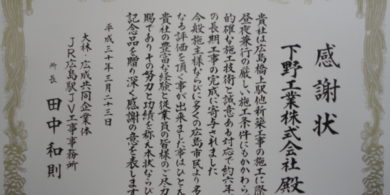 感謝状
下野工業株式会社 殿
貴社は広島橋上駅他新築工事の施工に際し
昼夜兼行の厳しい施工条件にもかかわらず
的確な施工技術と誠意ある対応で約六年
の長期工事の完成に寄与されました
今般施主様ならびに多くの広島市民より多大
なる評価を頂く事が出来ました事はひとえに
貴社の豊富な経験と従業員の皆様のご尽力の
賜でありその努力と功績を称え本状ならびに
記念品を贈り深く感謝の意を表します
平成三十年三月二十三日
大林・広成共同企業体
JR広島駅JV工事事務所
所長 田中和則